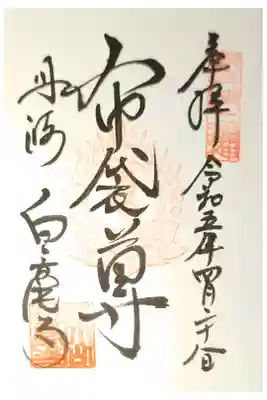 奉拝 令和五年四月二十
布袋尊
丹波 白毫寺